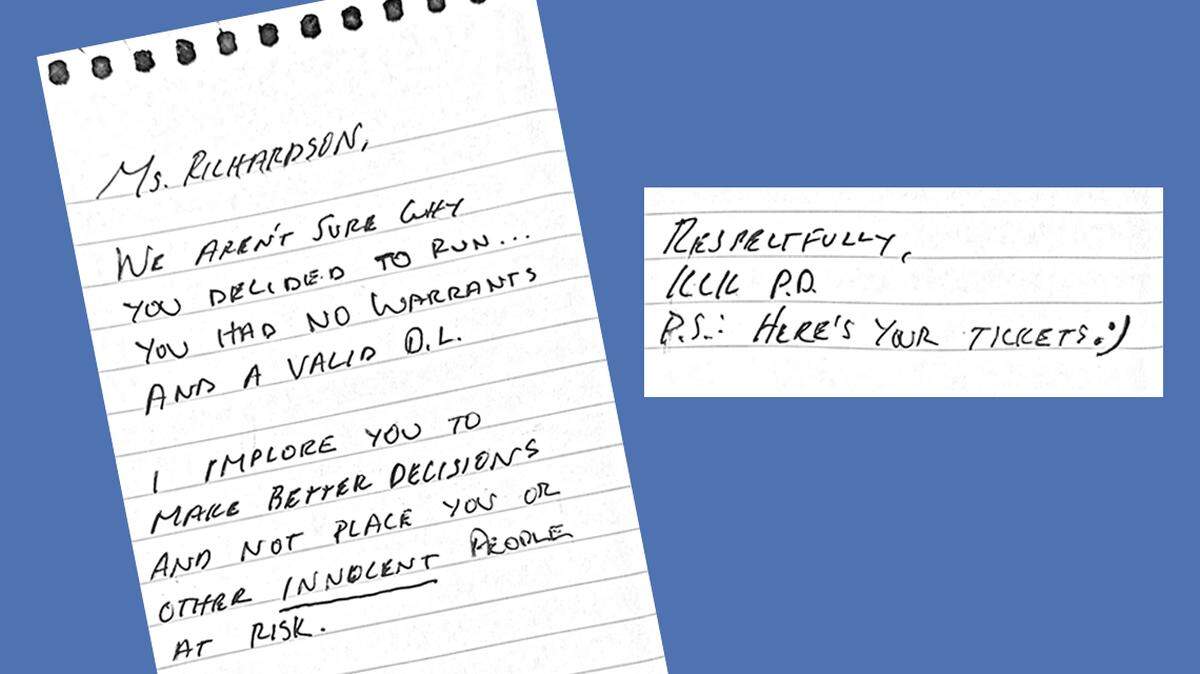 Ms. RICHARDSON,
WE AREN'T SURE WHY
YOU DECIDED TO RUN...
YOU HAD NO WARRANTS
AND A VALID D.L.
I IMPLORE YOU TO
MAKE BETTER DECISIONS
AND NOT PLACE YOU OR
OTHER INNOCENT PEOPLE
AT RISK.
RESPECTFULLY,
KCK P.D.
P.S.: HERE'S YOUR TICKETS :)